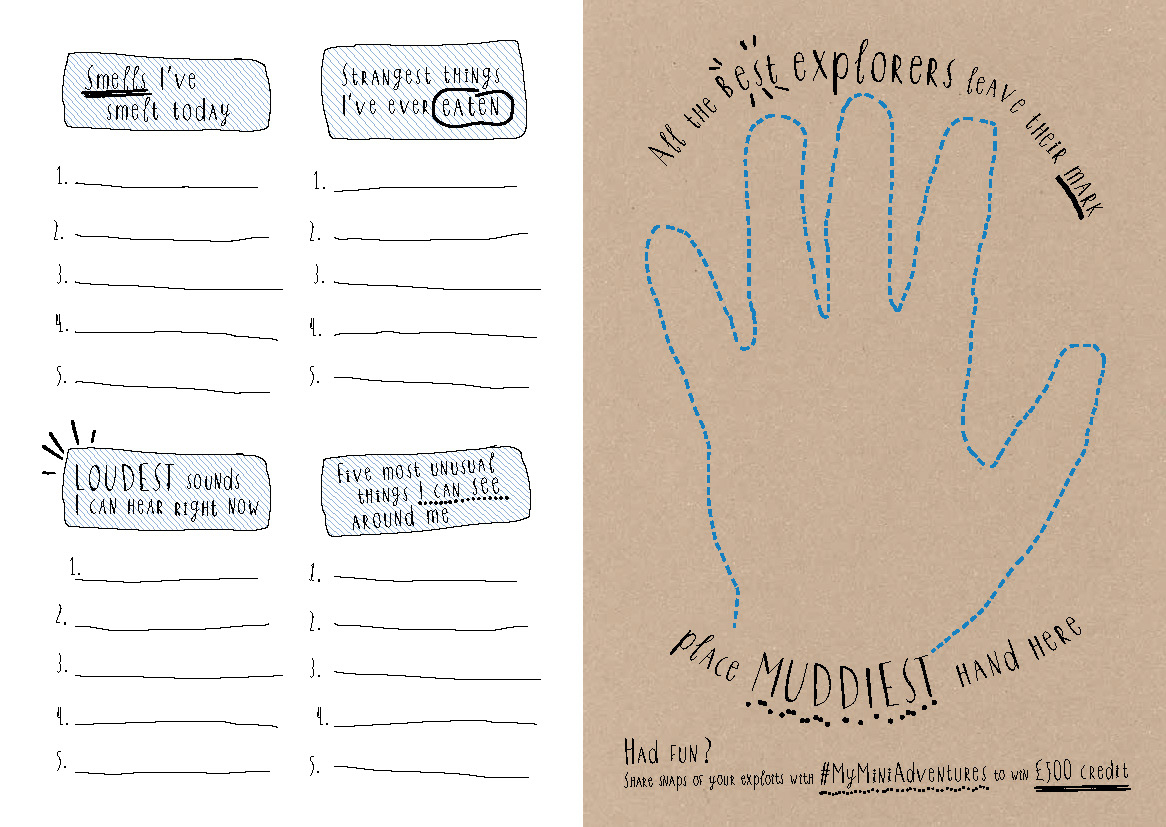 Smells I've
smelt today
1.
2.
3.
4.
5.
Strangest things
I've ever eaten
1.
2.
3.
4.
5.
LOUDEST sounds
I can hear right now
1.
2.
3.
4.
5.
Five most unusual
things I can see
around me
1.
2.
3.
4.
5.
All the Best explorers leave their mark
place MUDDIEST hand here
Had fun?
Share snaps of your exploits with #MyMiniAdventures to win £500 credit